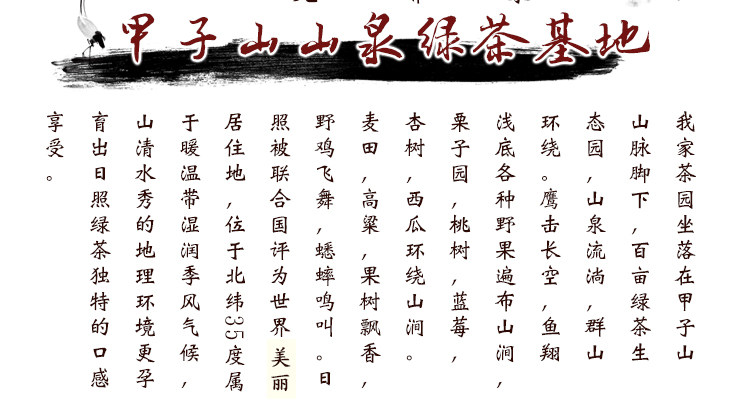 甲子山山泉绿茶基地
我家茶园坐落在甲子山
山脉脚下,百亩绿茶生
态园,山泉流淌,群山
环绕。鹰击长空,鱼翔
浅底各种野果遍布山涧,
栗子园,桃树,蓝莓,
杏树,西瓜环绕山涧。
麦田,高粱,果树飘香,
野鸡飞舞,蟋蟀鸣叫。日
照被联合国评为世界美丽
居住地,位于北纬35度属
于暖温带湿润季风气候,
山清水秀的地理环境更孕
育出日照绿茶独特的口感
享受。